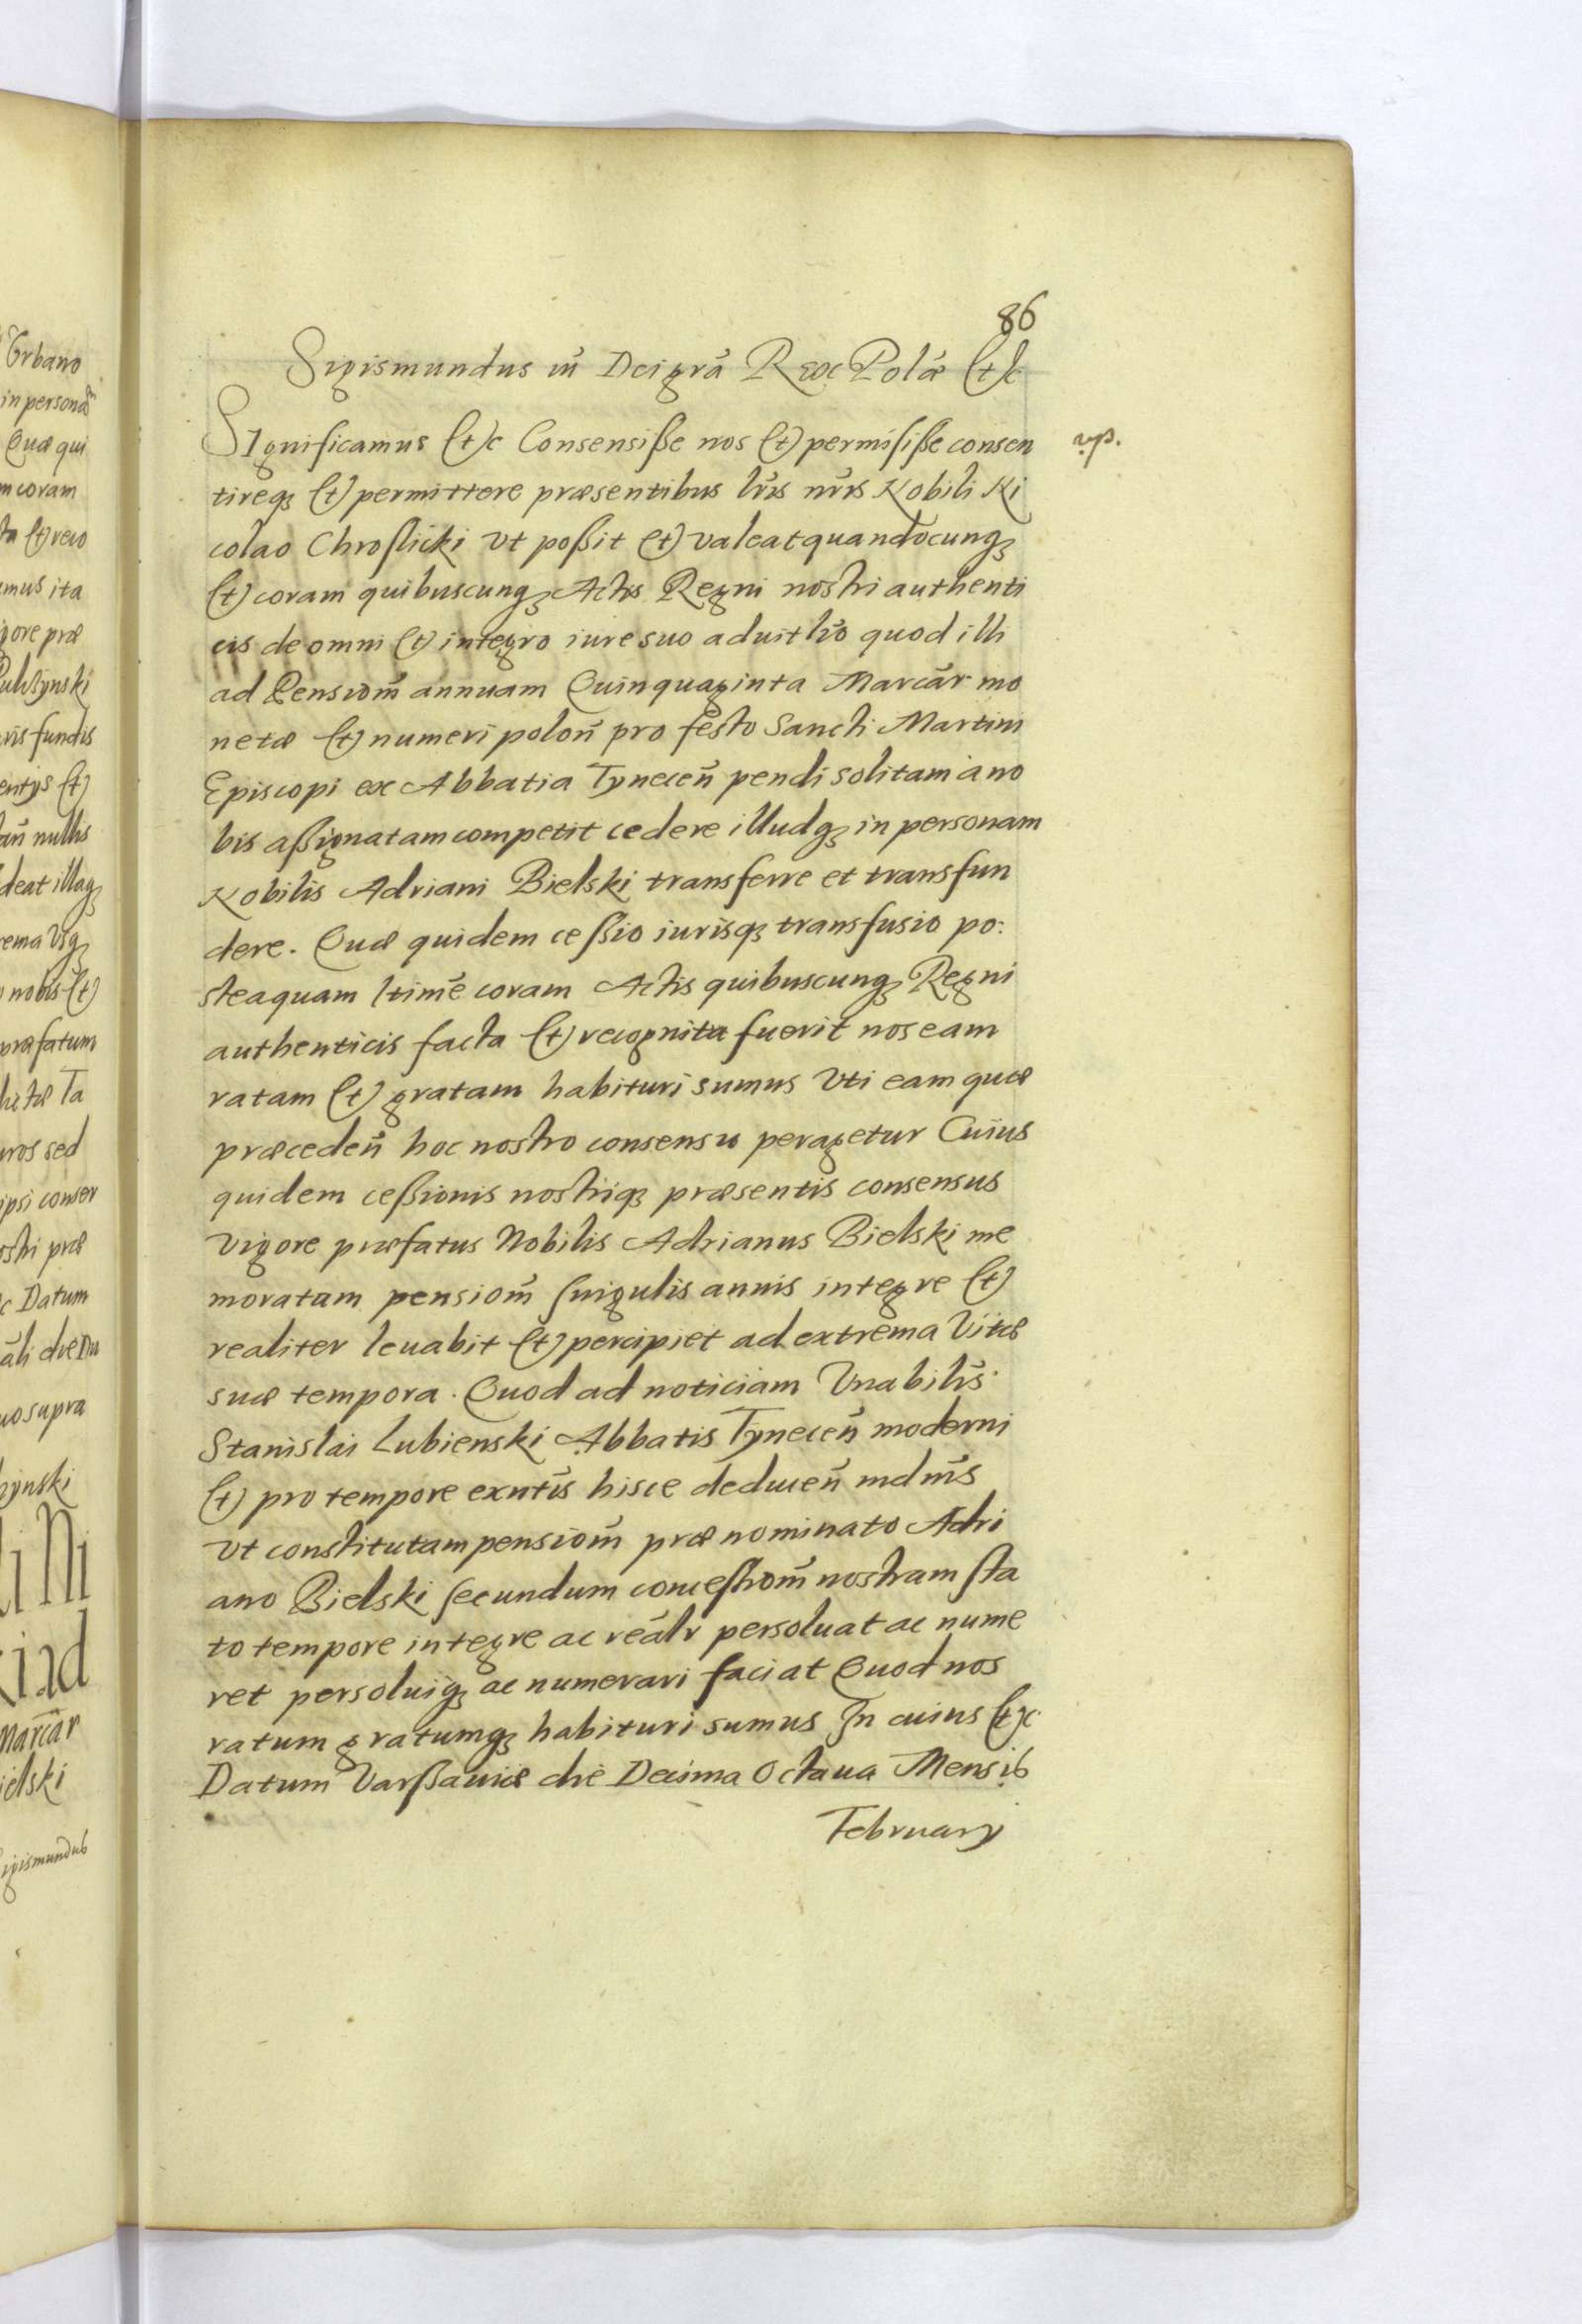 86
Sigismundus iii Dei grã Rex Polæ (et)c
SIgnificamus (et)c Consensiße nos (et) permisiße consen
tireqʒ (et) permittere præsentibus lr̃is nr̃is Nobili Ni
colao Chroslicki vt poßit (et) valeat quandocunqʒ
(et) coram quibuscunqʒ Actis Regni nostri authenti
cis de omni (et) integro iure suo aduitl̃io quod illi
ad Pensiom̃ annuam Quinquaginta Marcãr mo
netæ (et) numeri polon̄ pro festo Sancti Martini
Episcopi ex Abbatia Tynecen̄ pendi solitam à no
bis aßignatam competit cedere illudqʒ in personam
Nobilis Adriani Bielski transferre et transfun
dere. Quæ quidem ceßio iurisqʒ transfusio po:
steaquam ltimẽ coram Actis quibuscunqʒ Regni
authenticis facta (et) recognita fuerit nos eam
ratam (et) gratam habituri sumus vti eam quæ
præceden̄ hoc nostro consensu peragetur Cuius
quidem ceßionis nostriqʒ præsentis consensus
vigore præfatus Nobilis Adrianus Bielski me
moratam pensiom̃ singulis annis integre (et)
realiter leuabit (et) percipiet ad extrema vitæ
suæ tempora. Quod ad noticiam Vnabilis̃
Stanislai Lubienski Abbatis Tynecen̄ moderni
(et) pro tempore exnt̃is hisce deducen̄ mdm̃s
vt constitutam pensiom̃ præ nominato Adri
ano Bielski secundum conceßiom̃ nostram sta
to tempore integre ac reãlr persoluat ac nume
ret persoluiqʒ ac numerari faciat Quod nos
ratum gratumqʒ habituri sumus In cuius (et)c
Datum Varßauiæ die Decima Octaua Mensis
February